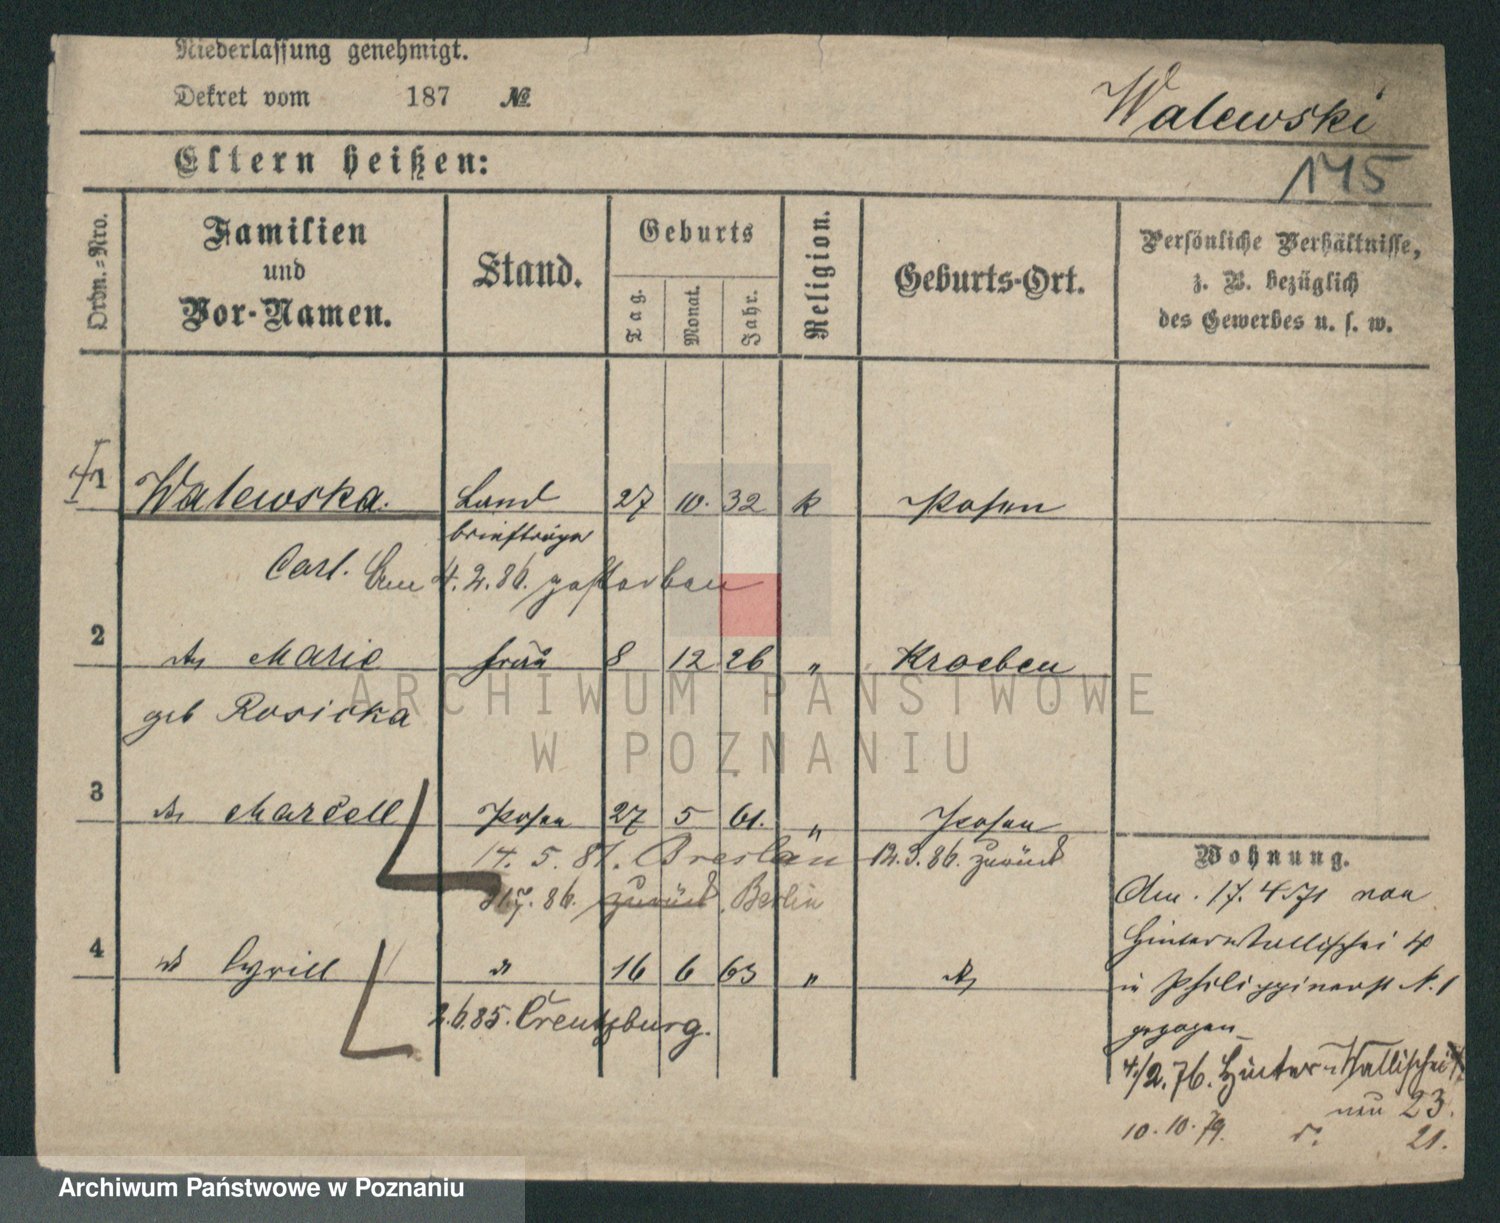 Niederlassung genehmigt.
Dekret vom 187 №
Walewski
Eltern heißen:
145
Ordn.-Nro.
Familien
und
Vor-Namen.
Stand.
Geburts
Tag.
Monat.
Jahr.
Religion.
Geburts-Ort.
Persönliche Verhältnisse,
z. B. bezüglich
des Gewerbes u. s. w.
1 Walewska. Land 27 10. 32 k Posen
briefträger
Carl. Am 4.2.86. gestorben
2 Marie Frau 8 12 26 " Kroeben
geb Rosicka
3 Marcell Posen 27 5 61. " Posen
14. 5. 81. Breslau 12.3.86. zurück
86. zurück. Berlin
4 Cyrill 16 6 63 "
2.6.85. Creutzburg.
Wohnung.
Am. 17. 4 71 von
Hinterwallischei 4
in Philippinerst N. 1
gezogen
4/2.76. Hinter-Wallischei
neu 23.
10.10.79. 21.
ARCHIWUM PAŃSTWOWE
W POZNANIU
Archiwum Państwowe w Poznaniu